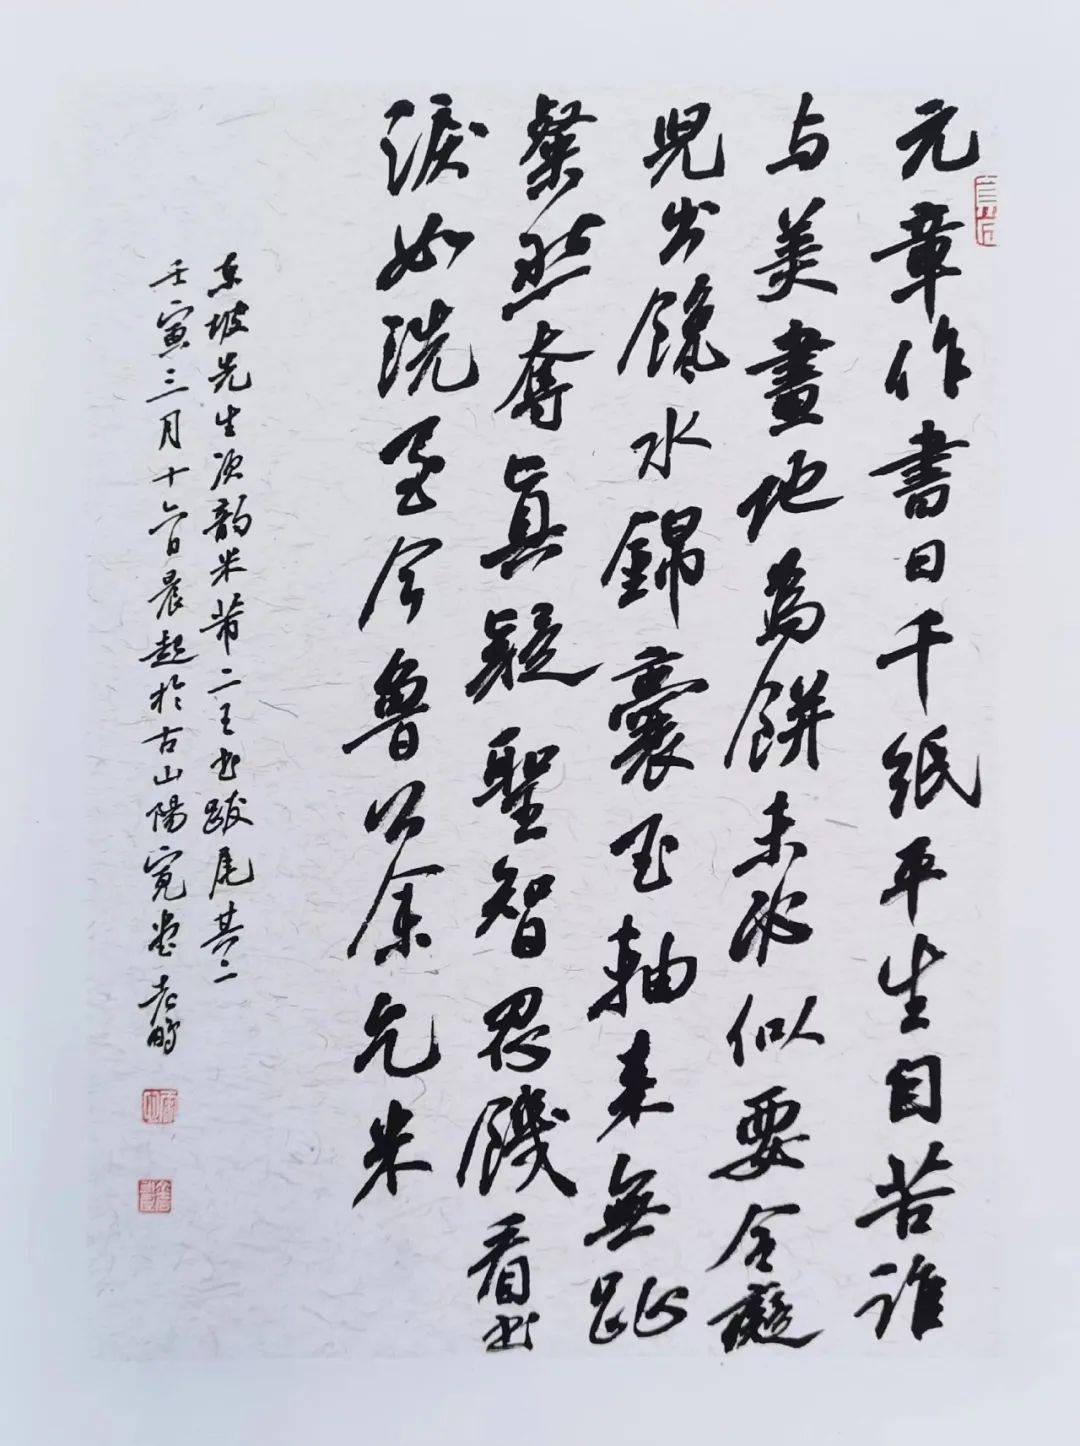 元章作書日千紙平生自苦誰
与美畫地為餅未必似要令癡
兒出饞水錦囊玉軸来無趾
粲然奪真疑聖智忍饑看书
淚如洗至今魯公余乞米
东坡先生次韵米芾二王书跋尾其二
壬寅三月十六日晨起於古山陽寬堂